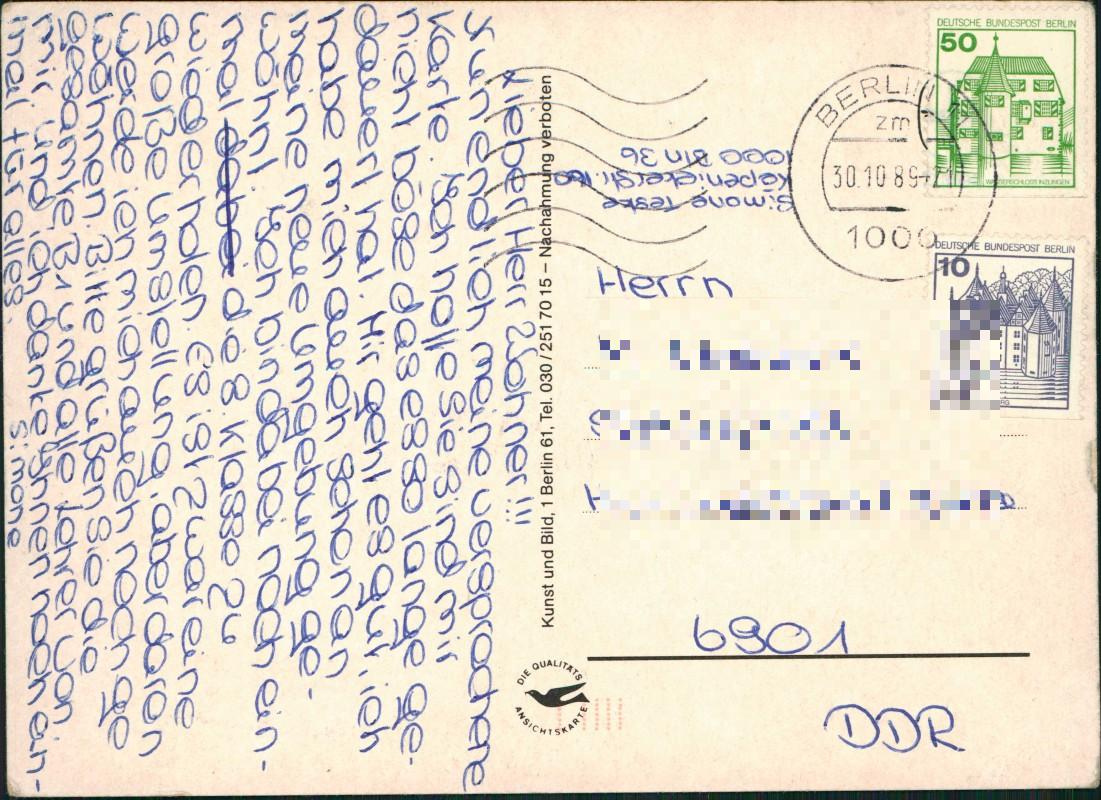 Lieber Herr Zöhner!!!
Nun endlich meine versprochene
Karte. Ich hoffe Sie sind mir
nicht böse das es so lange ge-
dauert hat. Mir geht es gut, ich
habe mich auch schon an
meine neue umgebung ge-
wöhnt. Ich bin dabei noch ein-
mal dabei die 8. Klasse zu
wiederholen. Es ist zwar eine
große umstellung, aber daran
werde ich mich auch noch ge
wöhnen. Bitte grüßen Sie die
gesamte B1 und alle Lehrer von
mir und ich danke Ihnen noch ein-
mal für alles.
Simone
Kunst und Bild, 1 Berlin 61, Tel. 030 / 251 70 15 – Nachahmung verboten
DIE QUALITÄTS
ANSICHTSKARTE
Simone Teske
Köpenickerstr. 180
1000 Bln 36
BERLIN
zm
30.10.89
1000
DEUTSCHE BUNDESPOST BERLIN
50
WASSERSCHLOSS INZLINGEN
DEUTSCHE BUNDESPOST BERLIN
10
Herrn
6901
DDR